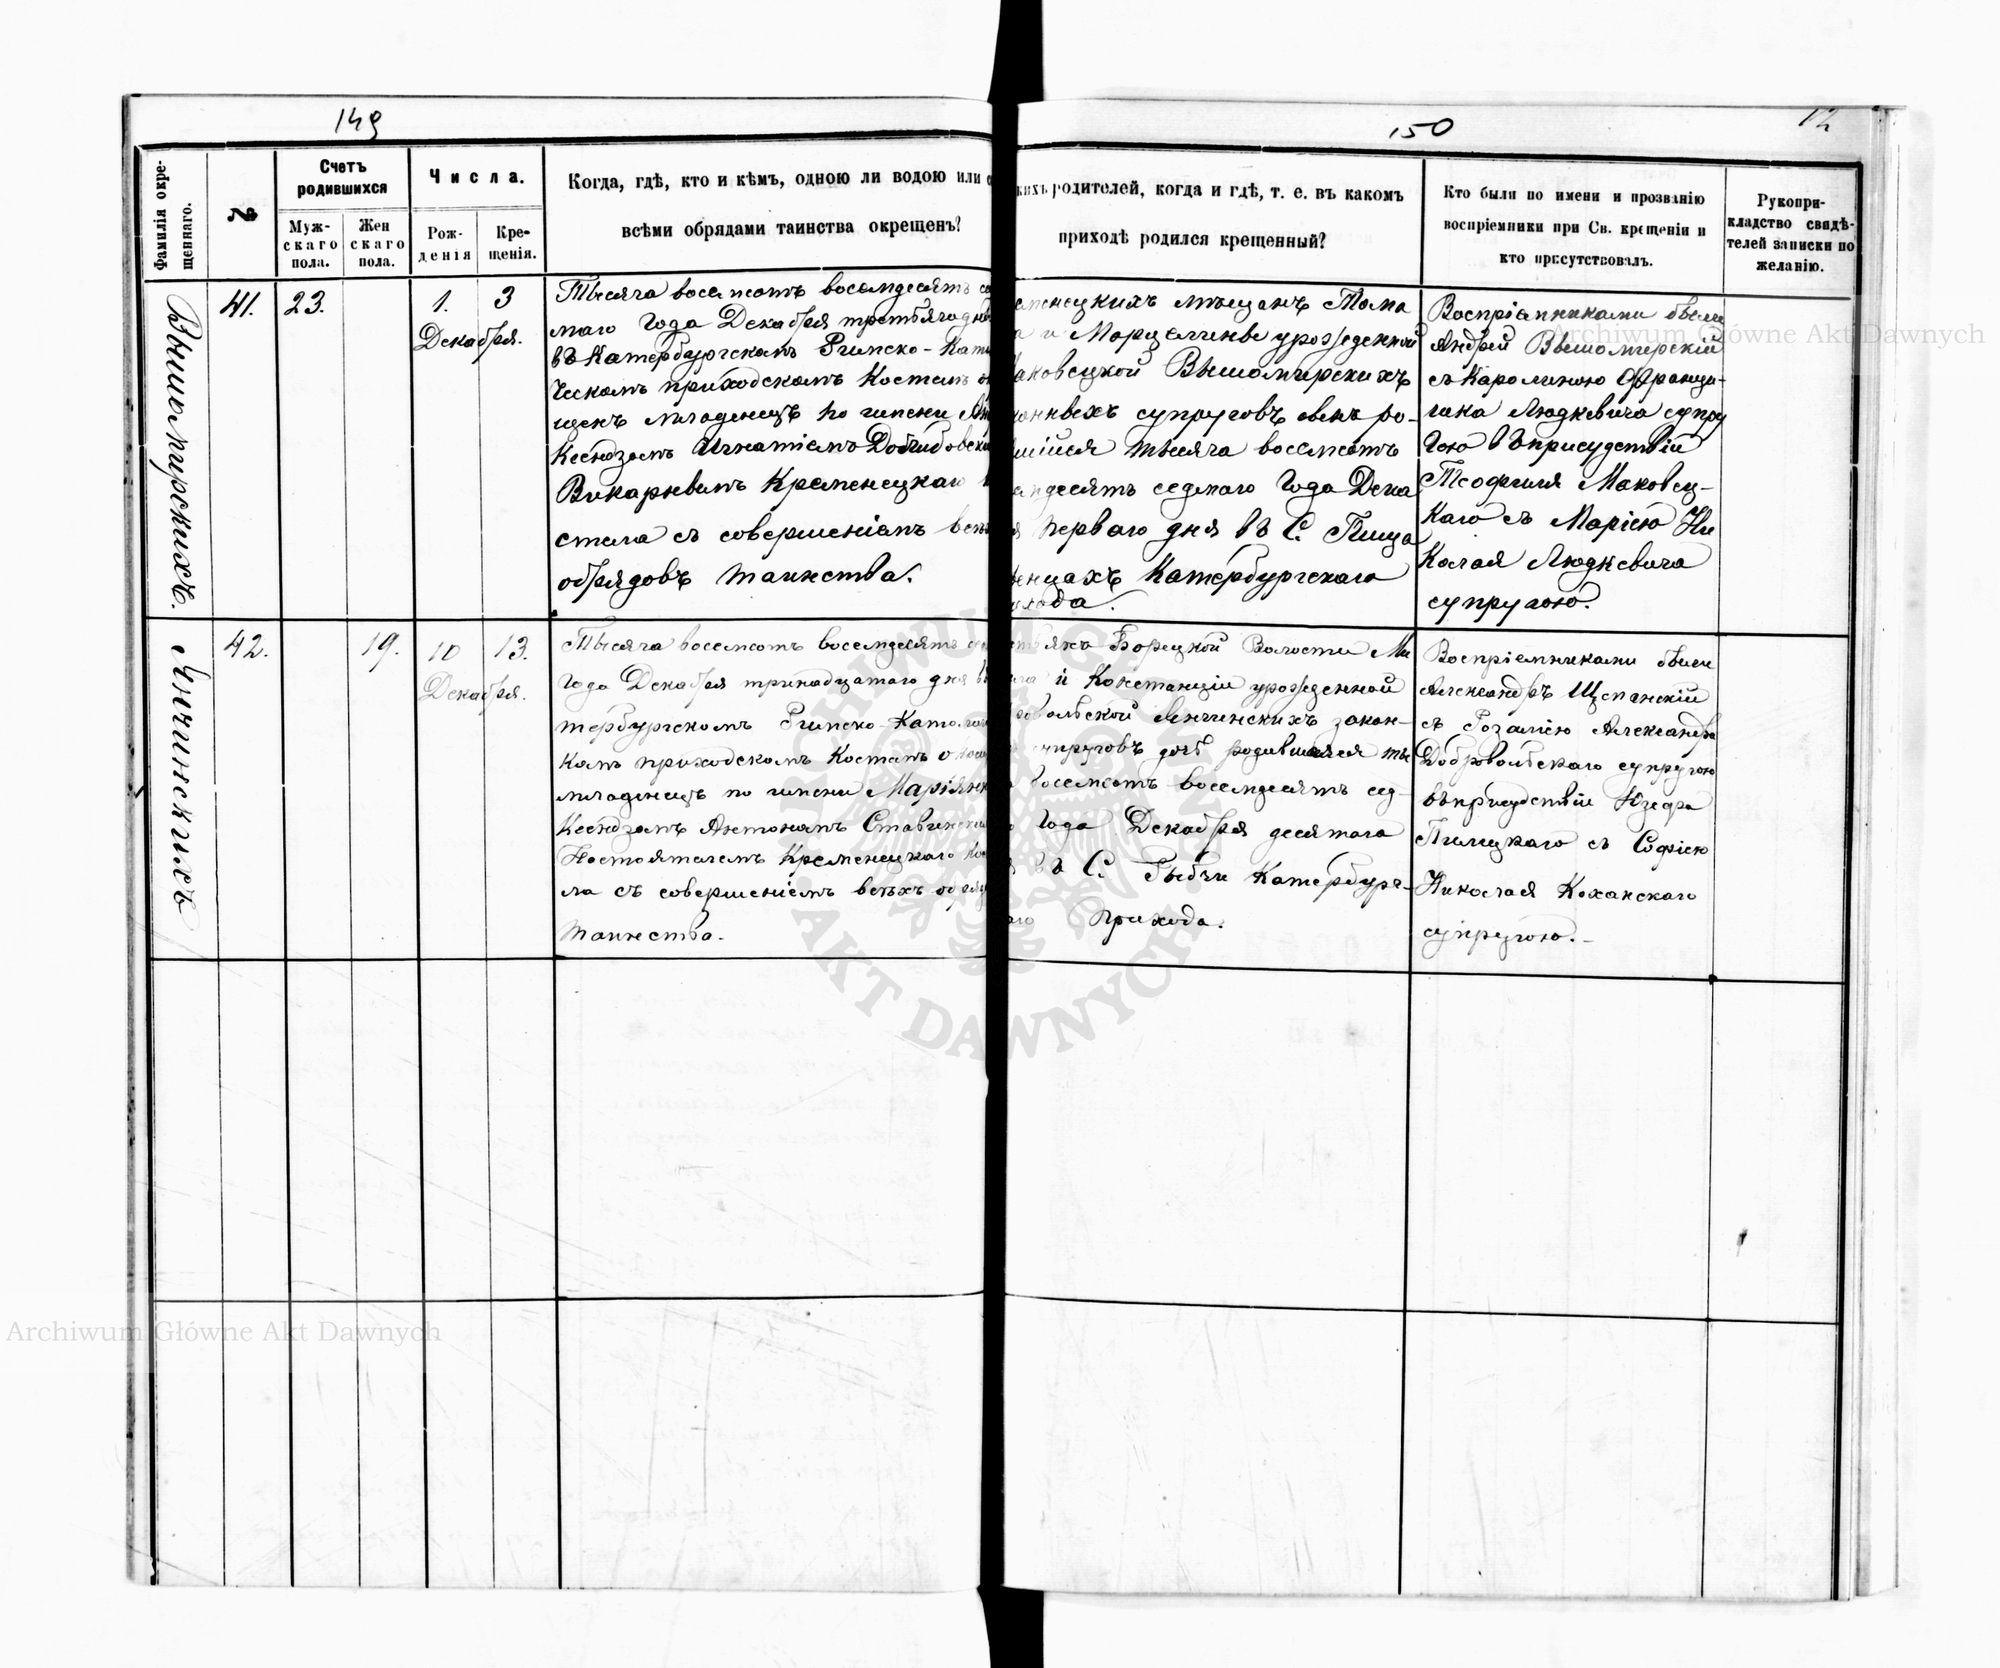 149
150
12
Фамилія окре-
щеннаго.
№
Счетъ
родившихся
Муж-
скаго
пола.
Жен
скаго
пола.
Числа.
Рож-
денія
Кре-
щенія.
Когда, гдѣ, кто и кѣмъ, одною ли водою или с
всѣми обрядами таинства окрещенъ?
кихъ родителей, когда и гдѣ, т. е. въ какомъ
приходѣ родился крещенный?
Кто были по имени и прозванію
воспріемники при Св. крещеніи и
кто присутствовалъ.
Рукопри-
кладство свидѣ-
телей записки по
желанію.
Вышомирскихъ.
41.
23.
1.
3
Декабря.
Тысяча восемьсотъ восемдесятъ се
маго Года Декабря третьяго дня
въ Катербургскомъ Римско-Като
ческомъ приходскомъ Костелѣ ок
щенъ младенецъ по имени Ан
Ксендзомъ Игнатіемъ
Викарнымъ Кременецкаго К
стела съ совершеніемъ всѣх
обрядовъ таинства.
еменецкихъ мѣщанъ Тома
а и Марцелины урожденной
аковецкой Вышомирскихъ
конныхъ супруговъ сынъ ро-
вшійся тысяча восемьсотъ
емдесятъ седьмаго Года Дека
я перваго дня въ С. Пища
енцахъ Катербургскаго
ихода.
Воспріемниками были
Андрей Вышомирскій
съ Каролиною Франци-
шка Людкевича супру
гою въ присудствіи
Теофиля Маковец-
каго съ Маріею Ни
колая Людкевича
супругою.
Янчинскихъ
42.
19.
10
13.
Декабря.
Тысяча восемьсотъ восемдесятъ сед
Года Декабря тринадцатаго дня въ
тербургскомъ Римско-Католич
комъ приходскомъ Костелѣ окрещ
младенецъ по имени Маріянн
Ксендзомъ Антономъ Ставинским
Настоятелемъ Кременецкаго Кос
ла съ совершеніемъ всѣхъ обряд
таинства.
стьянъ Борецкой Волости Ми
и Констанціи урожденной
ровольской Янчинскихъ закон-
супруговъ дочь родившаяся ты
восемьсотъ восемдесятъ сед-
го Года Декабря десятаго
въ С. Рыбчи Катербург-
аго Прихода.
Воспріемниками были
Александръ Щепанскій
съ Розаліею Александра
Добровольскаго супругою
въ присудствіи
Пилецкаго съ Софіею
Николая Коханскаго
супругою.
Archiwum Główne Akt Dawnych
Archiwum Główne Akt Dawnych
ARCHIWUM GŁÓWNE
AKT DAWNYCH